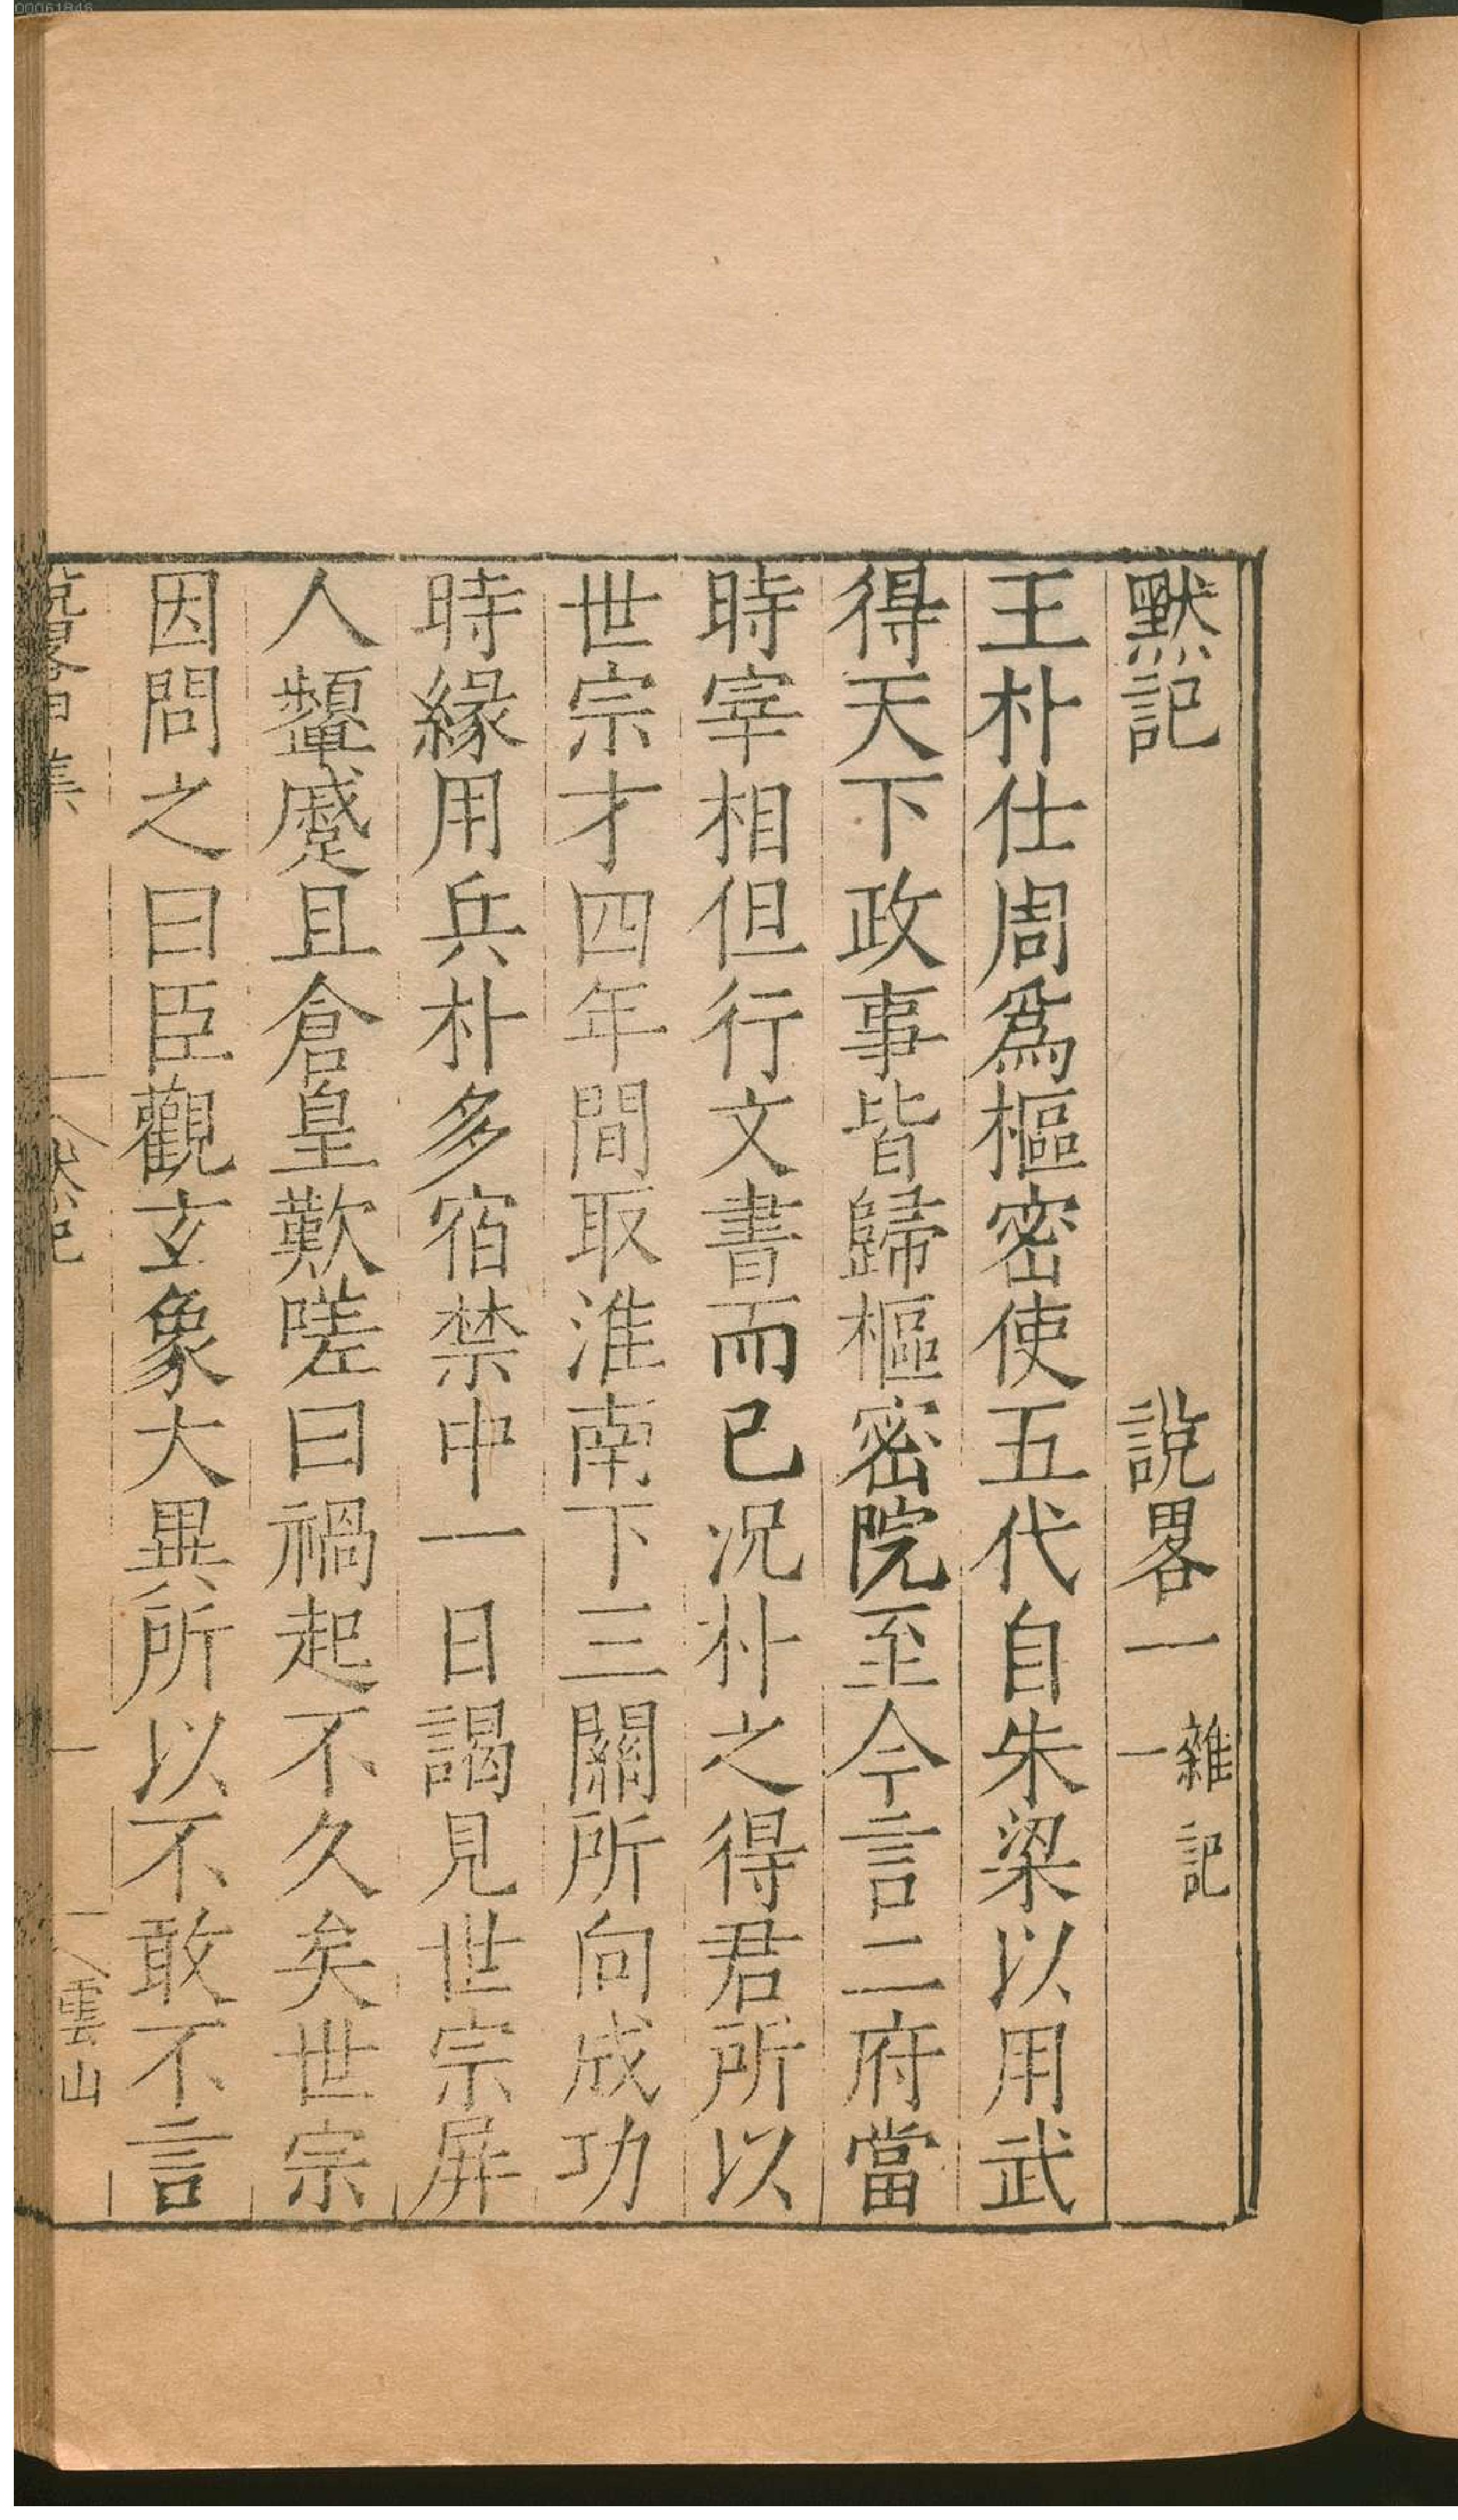 默記 說畧一 雜記一
王朴仕周爲樞密使五代自朱梁以用武
得天下政事皆歸樞密院至今言二府當
時宰相但行文書而已况朴之得君所以
世宗才四年間取淮南下三關所向成功
時緣用兵朴多宿禁中一日謁見世宗屏
人顰蹙且倉皇歎嗟曰禍起不久矣世宗
因問之曰臣觀玄象大異所以不敢不言
雲山
00061846